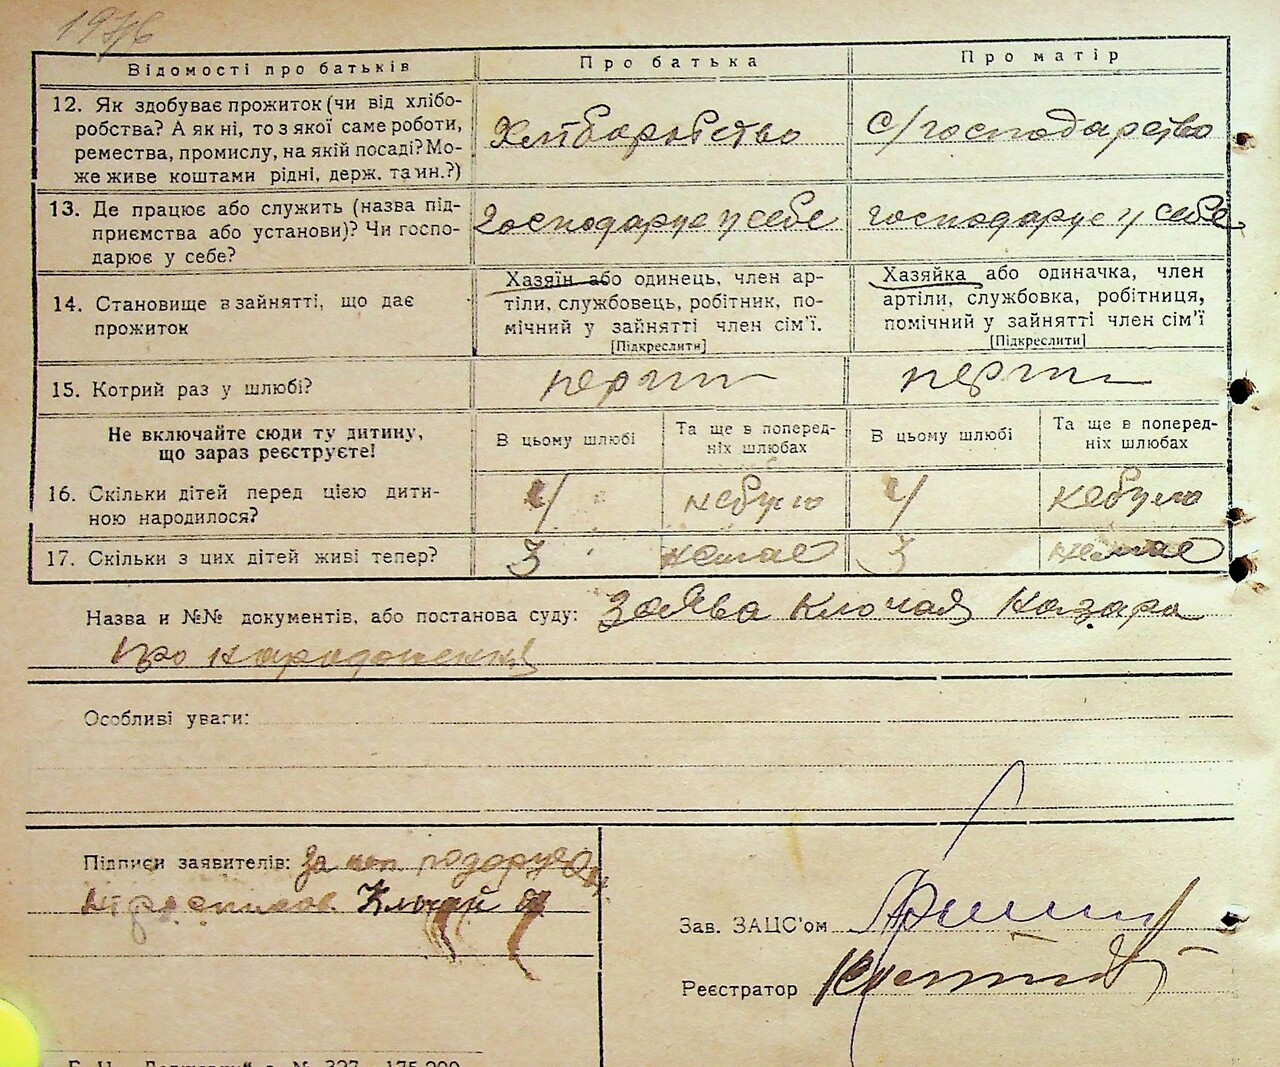 1976
Відомості про батьків Про батька Про матір
12. Як здобуває прожиток (чи від хлібо-
робства? А як ні, то з якої саме роботи,
ремества, промислу, на якій посаді? Мо-
же живе коштами рідні, держ. та ин.?)
Хліборобство
с/господарство
13. Де працює або служить (назва під-
приємства або установи)? Чи госпо-
дарює у себе?
господарує у себе
господарує у себе
14. Становище в зайнятті, що дає
прожиток
Хазяїн або одинець, член ар-
тіли, службовець, робітник, по-
мічний у зайнятті член сім'ї.
[Підкреслити]
Хазяйка або одиначка, член
артіли, службовка, робітниця,
помічний у зайнятті член сім'ї
[Підкреслити]
15. Котрий раз у шлюбі?
перший
перший
Не включайте сюди ту дитину,
що зараз реєструєте!
В цьому шлюбі
Та ще в поперед-
ніх шлюбах
В цьому шлюбі
Та ще в попере-
ніх шлюбах
16. Скільки дітей перед цією дити-
ною народилося?
4 небуло 4 небуло
17. Скільки з цих дітей живі тепер?
3 немає 3 немає
Назва и №№ документів, або постанова суду: Заява Ключая Назара
про народження
Особливі уваги:
Підписи заявителів: За
Ключай
Зав. ЗАЦС'ом
Реєстратор
№ 327 - 175.200